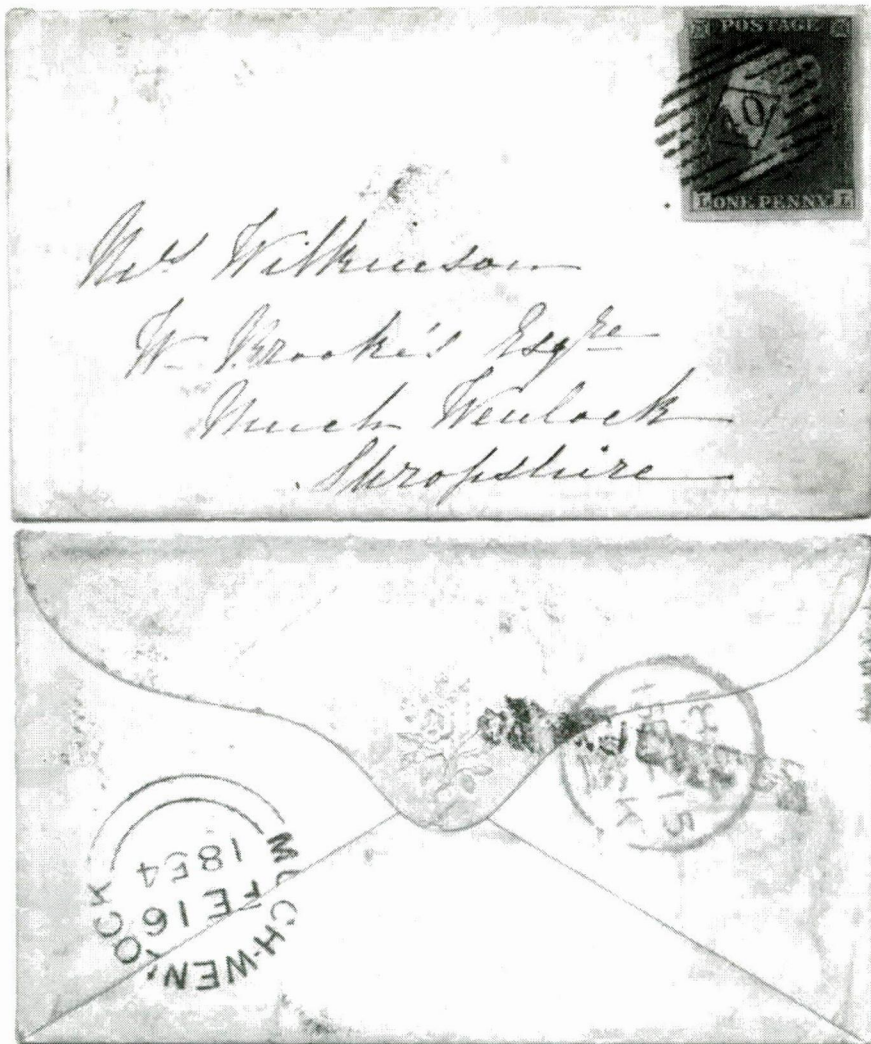 POSTAGE
ONE PENNY
L L
Mrs Wilkinson
W. Brooke's Esqre
Much Wenlock
Shropshire
MUCH-WENLOCK
FE 16
1854
15